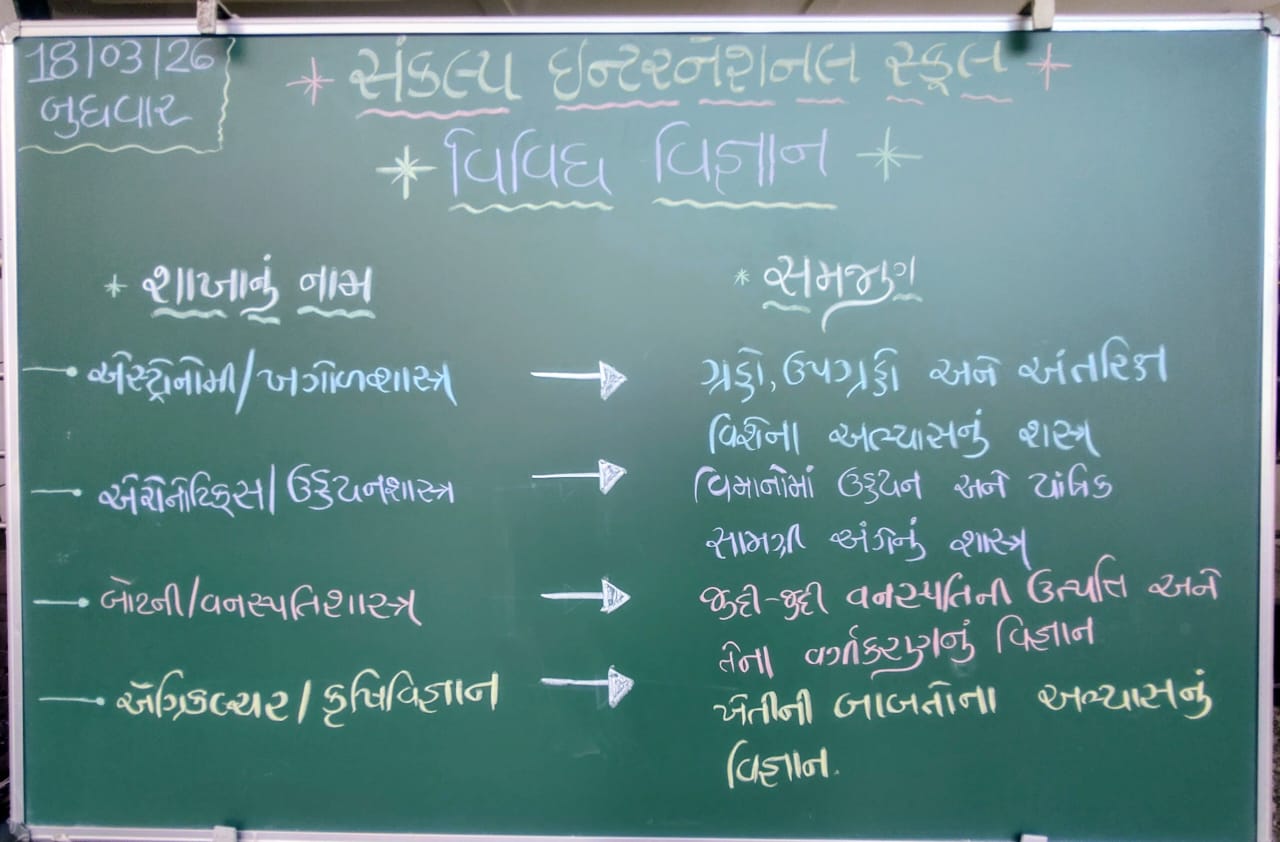 18/03/26
બુધવાર
સંકલ્પ ઇન્ટરનૅશનલ સ્કૂલ
વિવિધ વિજ્ઞાન
શાખાનું નામ
સમજણ
એસ્ટ્રોનોમી/ખગોળશાસ્ત્ર
ગ્રહો, ઉપગ્રહો અને અંતરિક્ષ
વિશેના અભ્યાસનું શસ્ત્ર
એરોનોટિક્સ/ઉડ્ડયનશાસ્ત્ર
વિમાનોમાં ઉડ્ડયન અને યાંત્રિક
સામગ્રી અંગેનું શાસ્ત્ર
બોટની/વનસ્પતિશાસ્ત્ર
જુદી-જુદી વનસ્પતિની ઉત્પત્તિ અને
તેના વર્ગીકરણનું વિજ્ઞાન
ઍગ્રિકલ્ચર/કૃષિવિજ્ઞાન
ખેતીની બાબતોના અભ્યાસનું
વિજ્ઞાન.